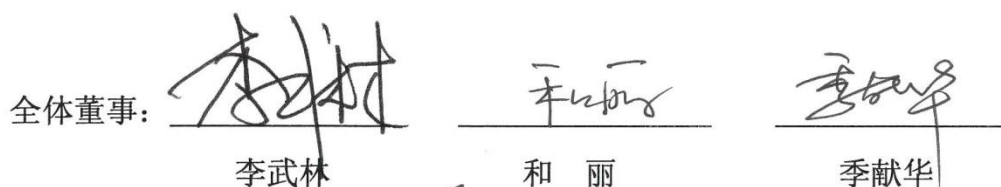 全体董事：
李武林 和 丽 季献华